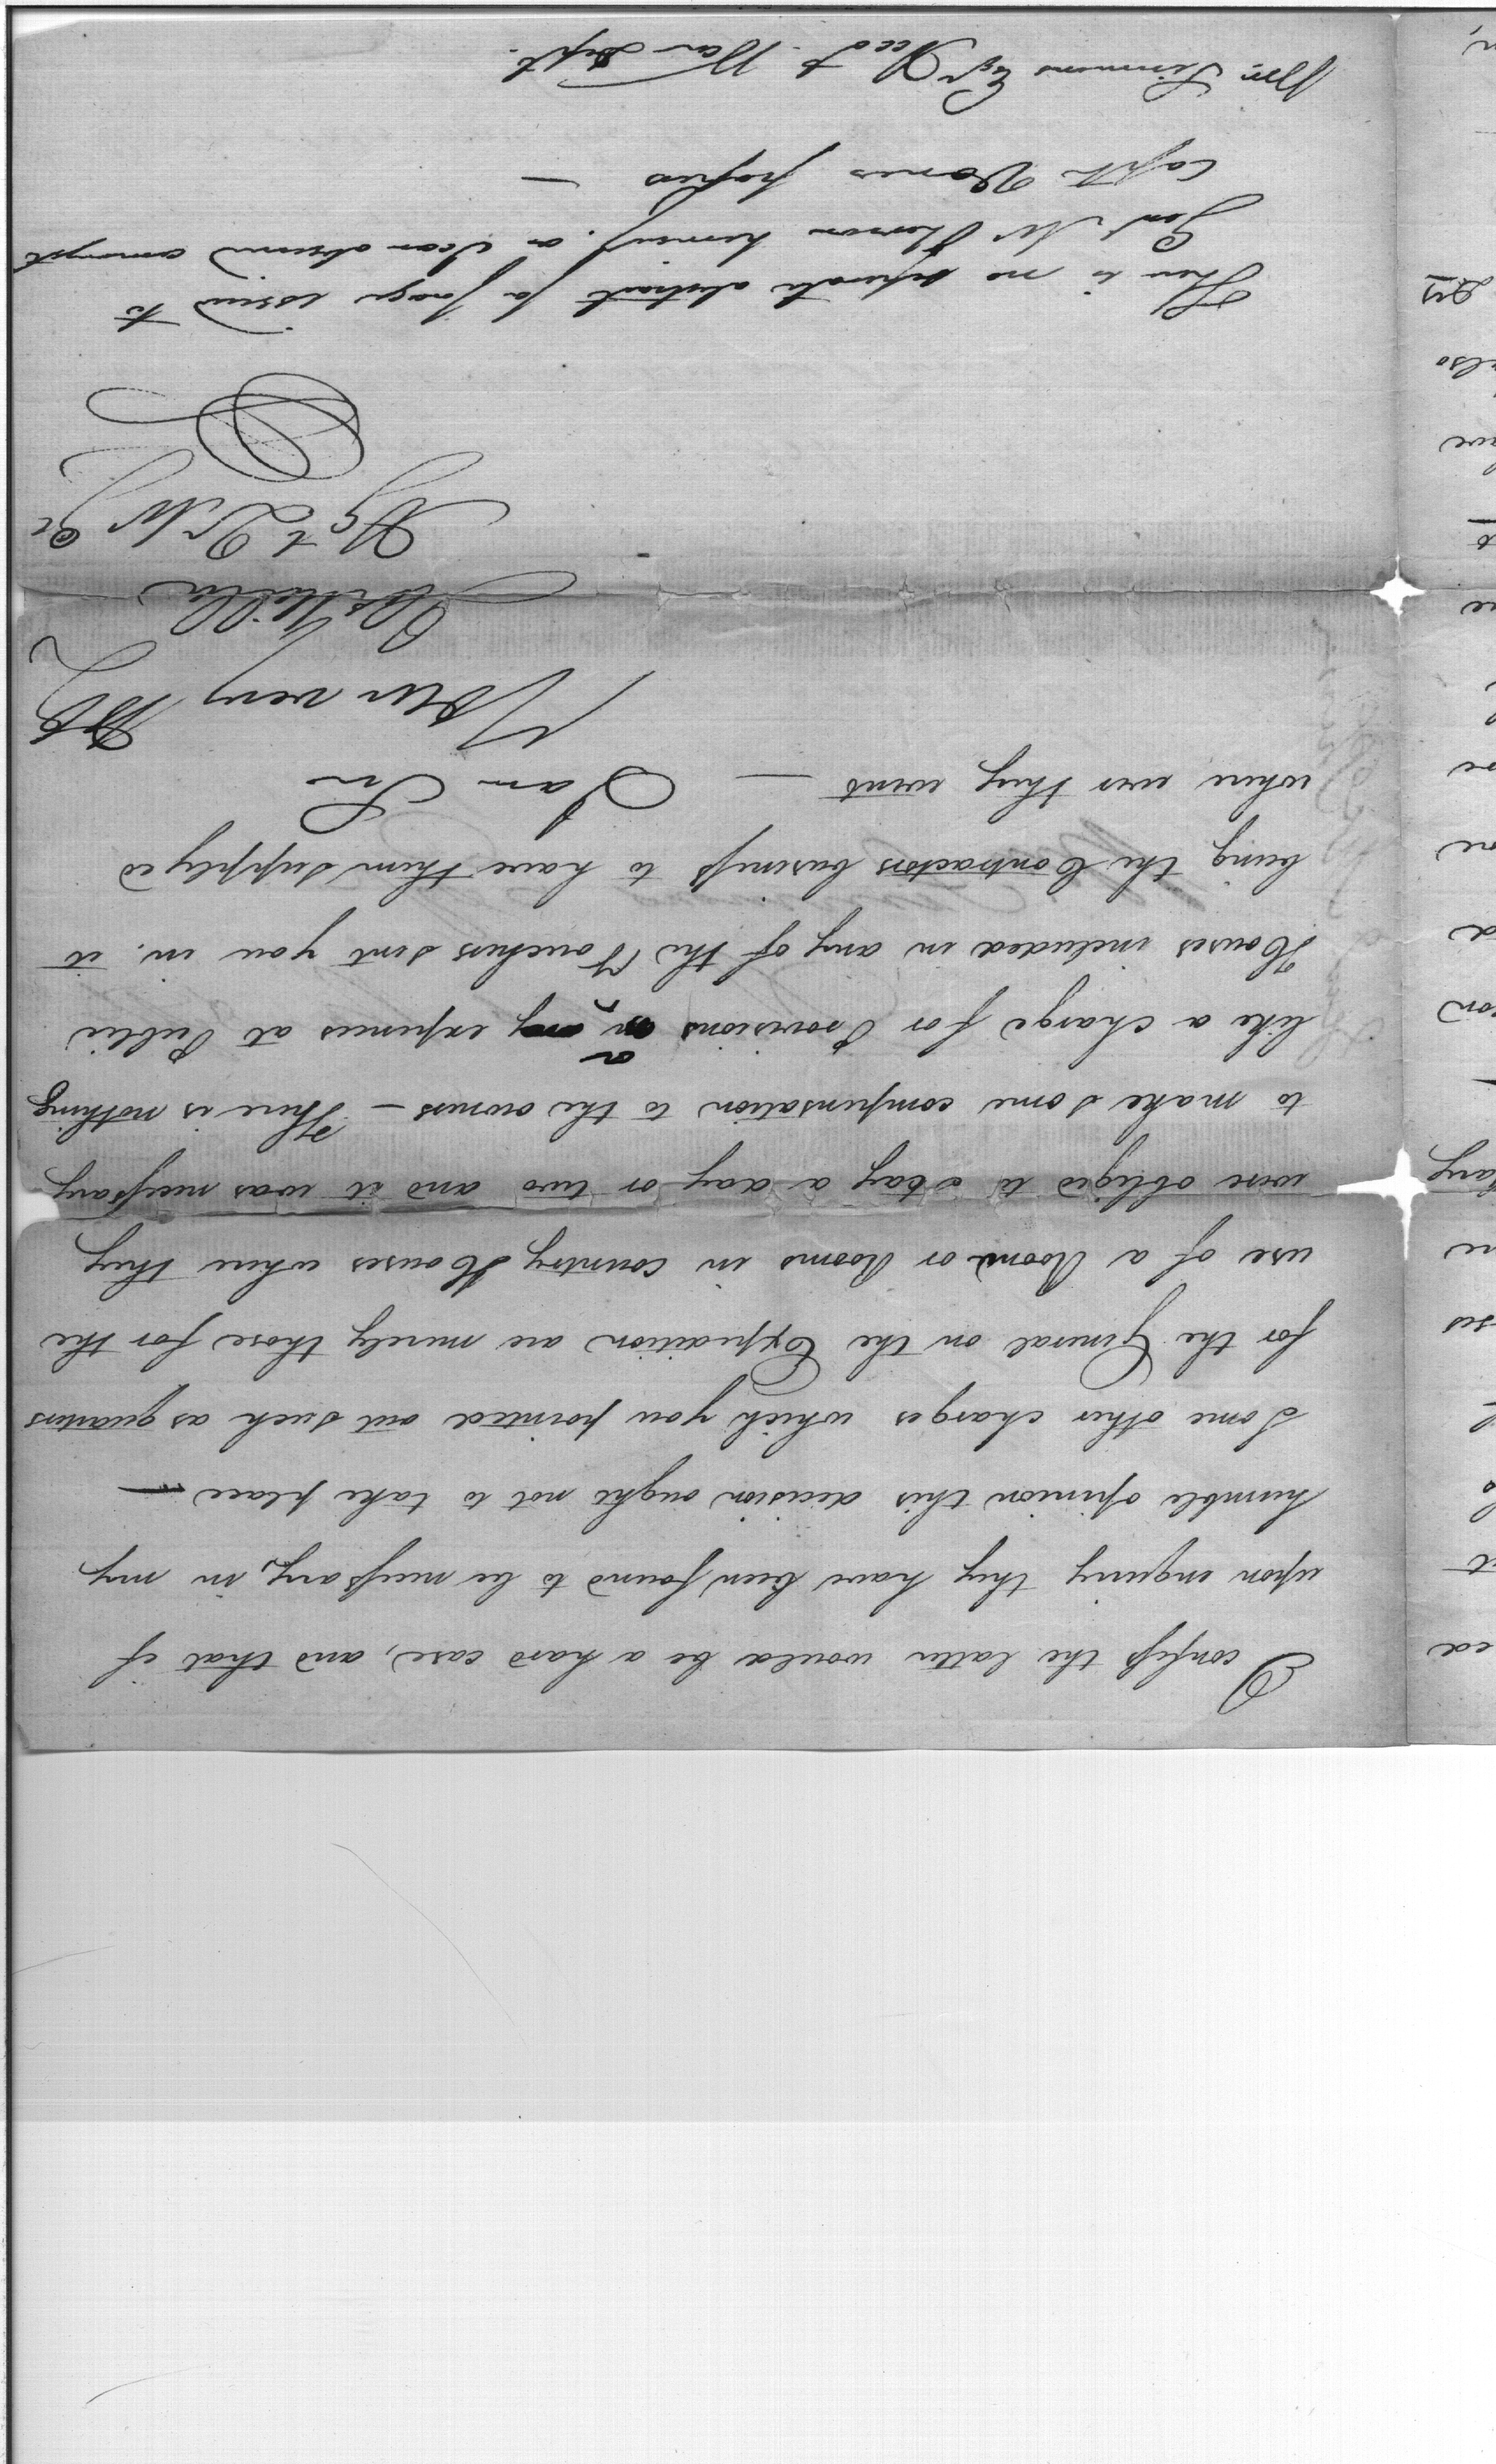 I confess the latter would be a hard case, and that if
upon enquiry they have been found to be necessary, in my
humble opinion this decision ought not to take place —
Some other charges which you pointed out such as quarters
for the General on the Expedition are merely those for the
use of a Room or Rooms in country Houses where they
were obliged to stay a day or two and it was necessary
to make some compensation to the owners — There is nothing
like a charge for Provisions or expences at Public
Houses included in any of the Vouchers sent you in. it
being the Contractors business to have them supplyed
where ever they went — I am Sir
Your very Hb
Jos Miller
Agt Qr Mr Gl
There is no seperate abstract for forage issued to
Genl
Capth papers —
Wm Simmons Esqr Acct War Dept.